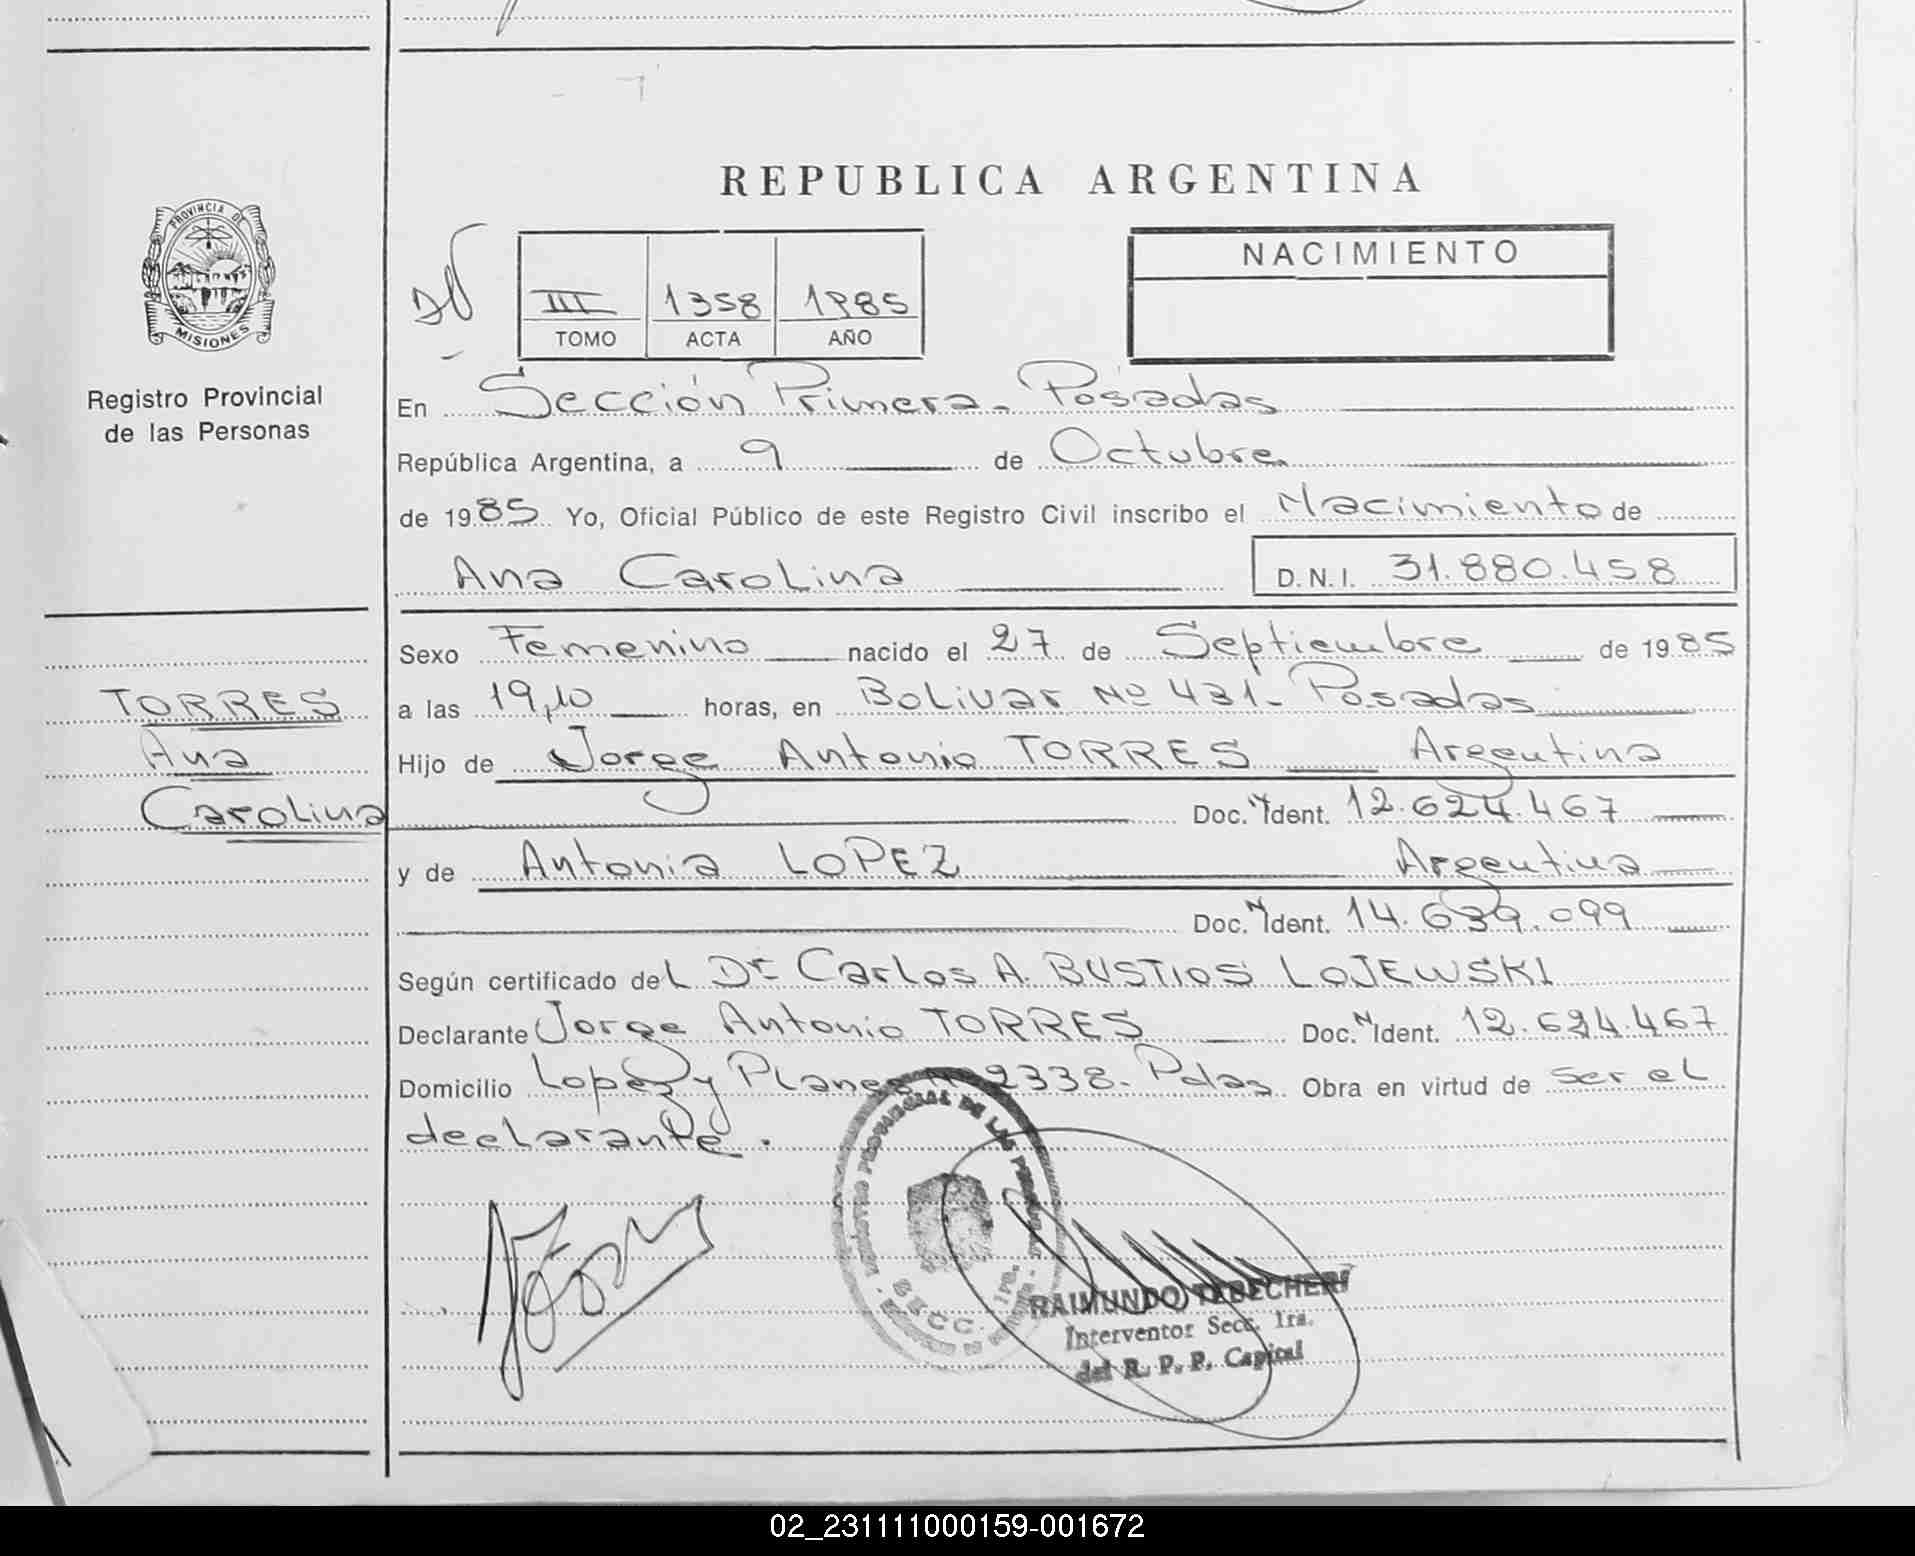 REPUBLICA ARGENTINA
PROVINCIA DE
MISIONES
Registro Provincial
de las Personas
III 1358 1985
TOMO ACTA AÑO
NACIMIENTO
En Sección Primera - Posadas
República Argentina, a 9 de Octubre
de 1985 Yo, Oficial Público de este Registro Civil inscribo el Nacimiento de
Ana Carolina D.N.I. 31.880.458
Sexo Femenino nacido el 27 de Septiembre de 1985
a las 19,10 horas, en Bolivar Nº 431 - Posadas
TORRES
Ana
Carolina
Hijo de Jorge Antonio TORRES Argentina
Doc. N Ident. 12.624.467
y de Antonia LOPEZ Argentina
Doc. N Ident. 14.639.099
Según certificado del Dr Carlos A. BUSTIOS LOJEWSKI
Declarante Jorge Antonio TORRES Doc. N Ident. 12.624.467
Domicilio Lopez y Planes Nº 2338 - Pdas Obra en virtud de ser el
declarante.
SECC. 1ra.
RAIMUNDO TEBECHERI
Interventor Secc. 1ra.
del R. P. P. Capital
02_231111000159-001672